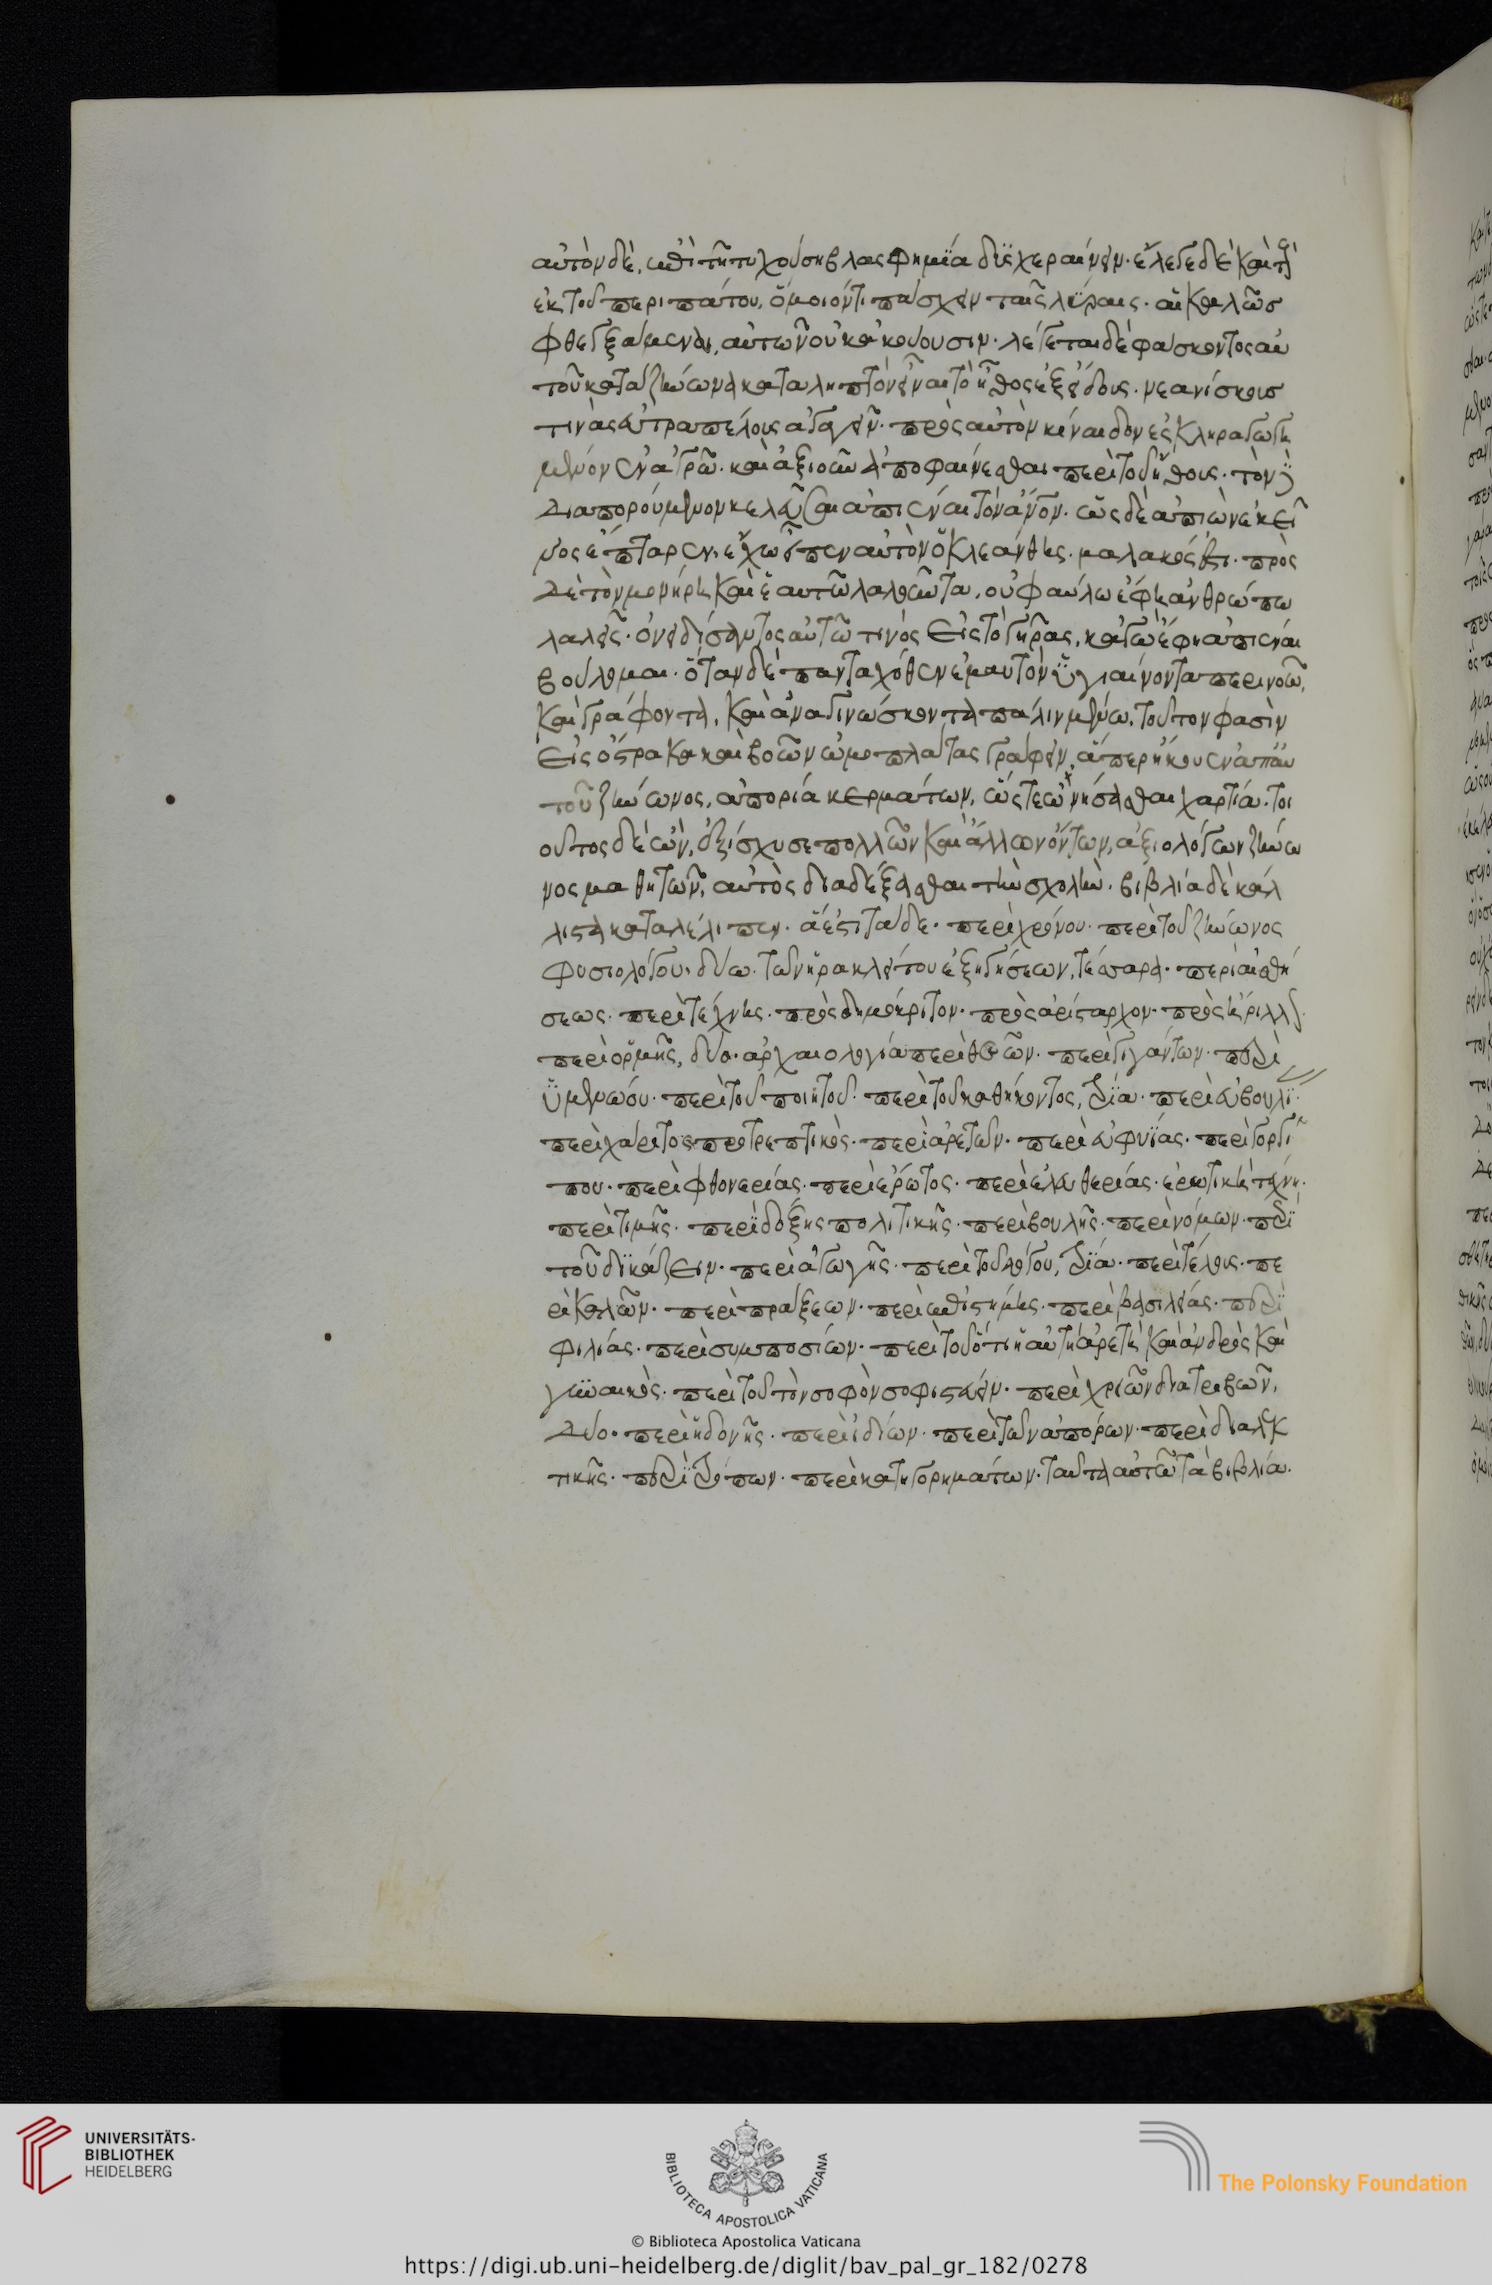 αὐτὸν δὲ, ἐπὶ τῆ τυχούση βλασφημία δϊσχεραίνειν· ἔλεγε δὲ καὶ τοὺς
ἐκ τοῦ περιπάτου, ὅμοιόν τι πάσχειν ταῖς λύραις· αἳ καλῶς
φθεγξάμεναι, αὐτῶν οὐκ ἀκούουσιν· λέγεται δὲ φάσκοντος αὐ
τοῦ κατὰ ζήνωνα καταληπτὸν εἶναι τὸ ἦθος ἐξ εἴδους· νεανίσκους
τινὰς εὐτραπέλους ἀγαγεῖν πρὸς αὐτὸν κίναιδον ἐσκληραγωγη
μένον ἐν ἀγρῶ· καὶ ἀξιοῦν ἀποφαίνεσθαι περὶ τοῦ ἤθους· τὸν δὲ
διαπορούμενον κελεῦσαι ἀπιέναι τὸν ἄνον· ὡς δὲ ἀπιὼν ἐκεῖ
νος ἔπταρεν, ἔχω εἶπεν αὐτὸν ὁ Κλεάνθης· μαλακός ἐστι· πρὸς
δὲ τὸν μονήρη καὶ ἑαυτῶ λαλοῦντα, οὐ φαύλω ἔφη ἀνθρώπω
λαλεῖς· ὀνειδίσαντος αὐτῶ τινὸς εἰς τὸ γῆρας, κἀγὼ ἔφη ἀπιέναι
βούλομαι· ὅταν δὲ πανταχόθεν ἐμαυτὸν ὑγιαίνοντα περινοῶ,
καὶ γράφοντα, καὶ ἀναγινώσκοντα πάλιν μένω· τοῦτον φασὶν
εἰς ὄστρακα καὶ βοῶν ὠμοπλάτας γράφειν ἅπερ ἤκουεν ἀπ' αὐ
τοῦ ζήνωνος, ἀπορία κερμάτων, ὥστε ὠνήσασθαι χαρτία· τοι
οῦτος δὲ ὢν, ἐξίσχυσε πολλῶν καὶ ἄλλων ὄντων, ἀξιολόγων ζήνω
νος μαθητῶν, αὐτὸς διαδέξασθαι τὴν σχολὴν· βιβλία δὲ κάλ
λιστα καταλέλιπεν· ἅ ἐστι τάδε· περὶ χρόνου· περὶ τοῦ ζήνωνος
φυσιολόγου, δύω· τῶν ἡρακλείτου ἐξηγήσεων, τέσσαρα· περὶ αἰσθή
σεως· περὶ τέχνης· πρὸς δημόκριτον· πρὸς ἀρίσταρχον· πρὸς ἡρίλλον
περὶ ὁρμῆς, δύο· ἀρχαιολογία περὶ θεῶν· περὶ γιγάντων· περὶ
ὑμεναίου· περὶ τοῦ ποιητοῦ· περὶ τοῦ καθήκοντος, τρία· περὶ εὐβουλί·
περὶ χάριτος προτρεπτικὸς· περὶ ἀρετῶν· περὶ εὐφυΐας· περὶ γοργί
που· περὶ φθονερίας· περὶ ἔρωτος· περὶ ἐλευθερίας· ἐρωτικὴ τέχνη·
περὶ τιμῆς· περὶ δόξης πολιτικῆς· περὶ βουλῆς· περὶ νόμων· περὶ
τοῦ δϊκάζειν· περὶ ἀγωγῆς· περὶ τοῦ λόγου, τρία· περὶ τέλους· πε
ρὶ καλῶν· περὶ πράξεων· περὶ ἐπιστήμης· περὶ βασιλείας· περὶ
φιλίας· περὶ συμποσίων· περὶ τοῦ ὅτι ἡ αὐτὴ ἀρετὴ καὶ ἀνδρὸς καὶ
γυναικὸς· περὶ τοῦ τὸν σοφὸν σοφιστεύειν· περὶ χρειῶν διατριβῶν,
δύο· περὶ ἡδονῆς· περὶ ἰδίων· περὶ τῶν ἀπόρων· περὶ διαλεκ
τικῆς· περὶ τρόπων· περὶ κατηγορημάτων· ταῦτα αὐτῶ τὰ βιβλία·
UNIVERSITÄTS-
BIBLIOTHEK
HEIDELBERG
BIBLIOTECA APOSTOLICA VATICANA
The Polonsky Foundation
© Biblioteca Apostolica Vaticana
https://digi.ub.uni-heidelberg.de/diglit/bav_pal_gr_182/0278